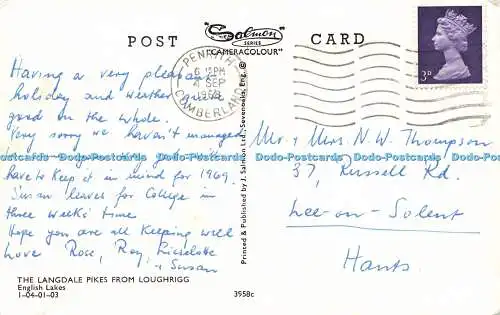 POST CARD
"Salmon SERIES
"CAMERACOLOUR"
PENRITH
6 PM
4 SEP
1968
CUMBERLAND
3D
Having a very pleasant
holiday and weather quite
good on the whole.
Very sorry we haven't managed
have to keep it in mind for 1969.
Susan leaves for College in
three weeks time
Hope you are all keeping well
Love Rose, Ray, Lieselotte
+ Susan
Mr + Mrs N.W. Thompson
37, Russell Rd.
Lee-on-Solent
Hants.
Dodo-Postcards Dodo-Postcards Dodo-Postcards Dodo-Postcards Dodo-Postcards
Printed & Published by J. Salmon Ltd., Sevenoaks, Eng. ©
THE LANGDALE PIKES FROM LOUGHRIGG
English Lakes
1-04-01-03
3958c